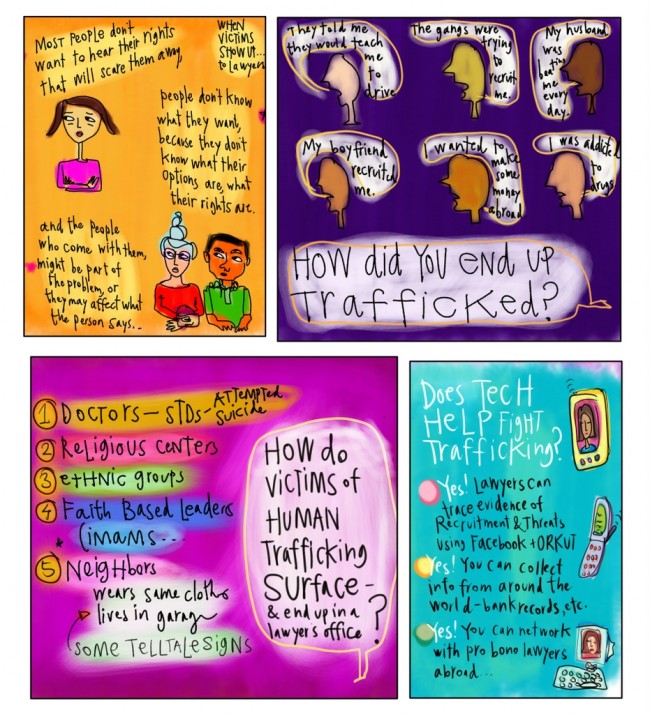 WHEN
VICTIMS
SHOW UP...
to Lawyers
MOST PEOPLE don't
want to hear their rights
that will scare them away.
people don't know
what they want,
because they don't
know what their
options are, what
their rights are.
and the people
who come with them,
might be part of
the problem, or
they may affect what
the person says...
They told me
they would teach
me
to
drive
The gangs were
trying
to
recruit
me.
My husband
was
beating
me
every
day.
My boyfriend
recruited
me.
I wanted to
make
some
money
abroad
I was addicted
to
drugs
HOW did YOU end up
Trafficked?
1 DOCTORS - STDs - ATTEMPTED
Suicide
2 Religious centers
3 ethnic groups
4 Faith Based Leaders
* (imams..
5 Neighbors
wears same clothes
lives in garage
SOME TELLTALE SIGNS
How do
VICTIMS of
HUMAN
Trafficking
SURFACE -
& end up in a
lawyers office?
Does TECH
HELP FIGHT
Trafficking?
Yes! Lawyers can
trace evidence of
Recruitment & Threats
using Facebook + ORKUT
Yes! You can collect
info from around the
world - bank records, etc.
Yes! You can network
with pro bono lawyers
abroad...